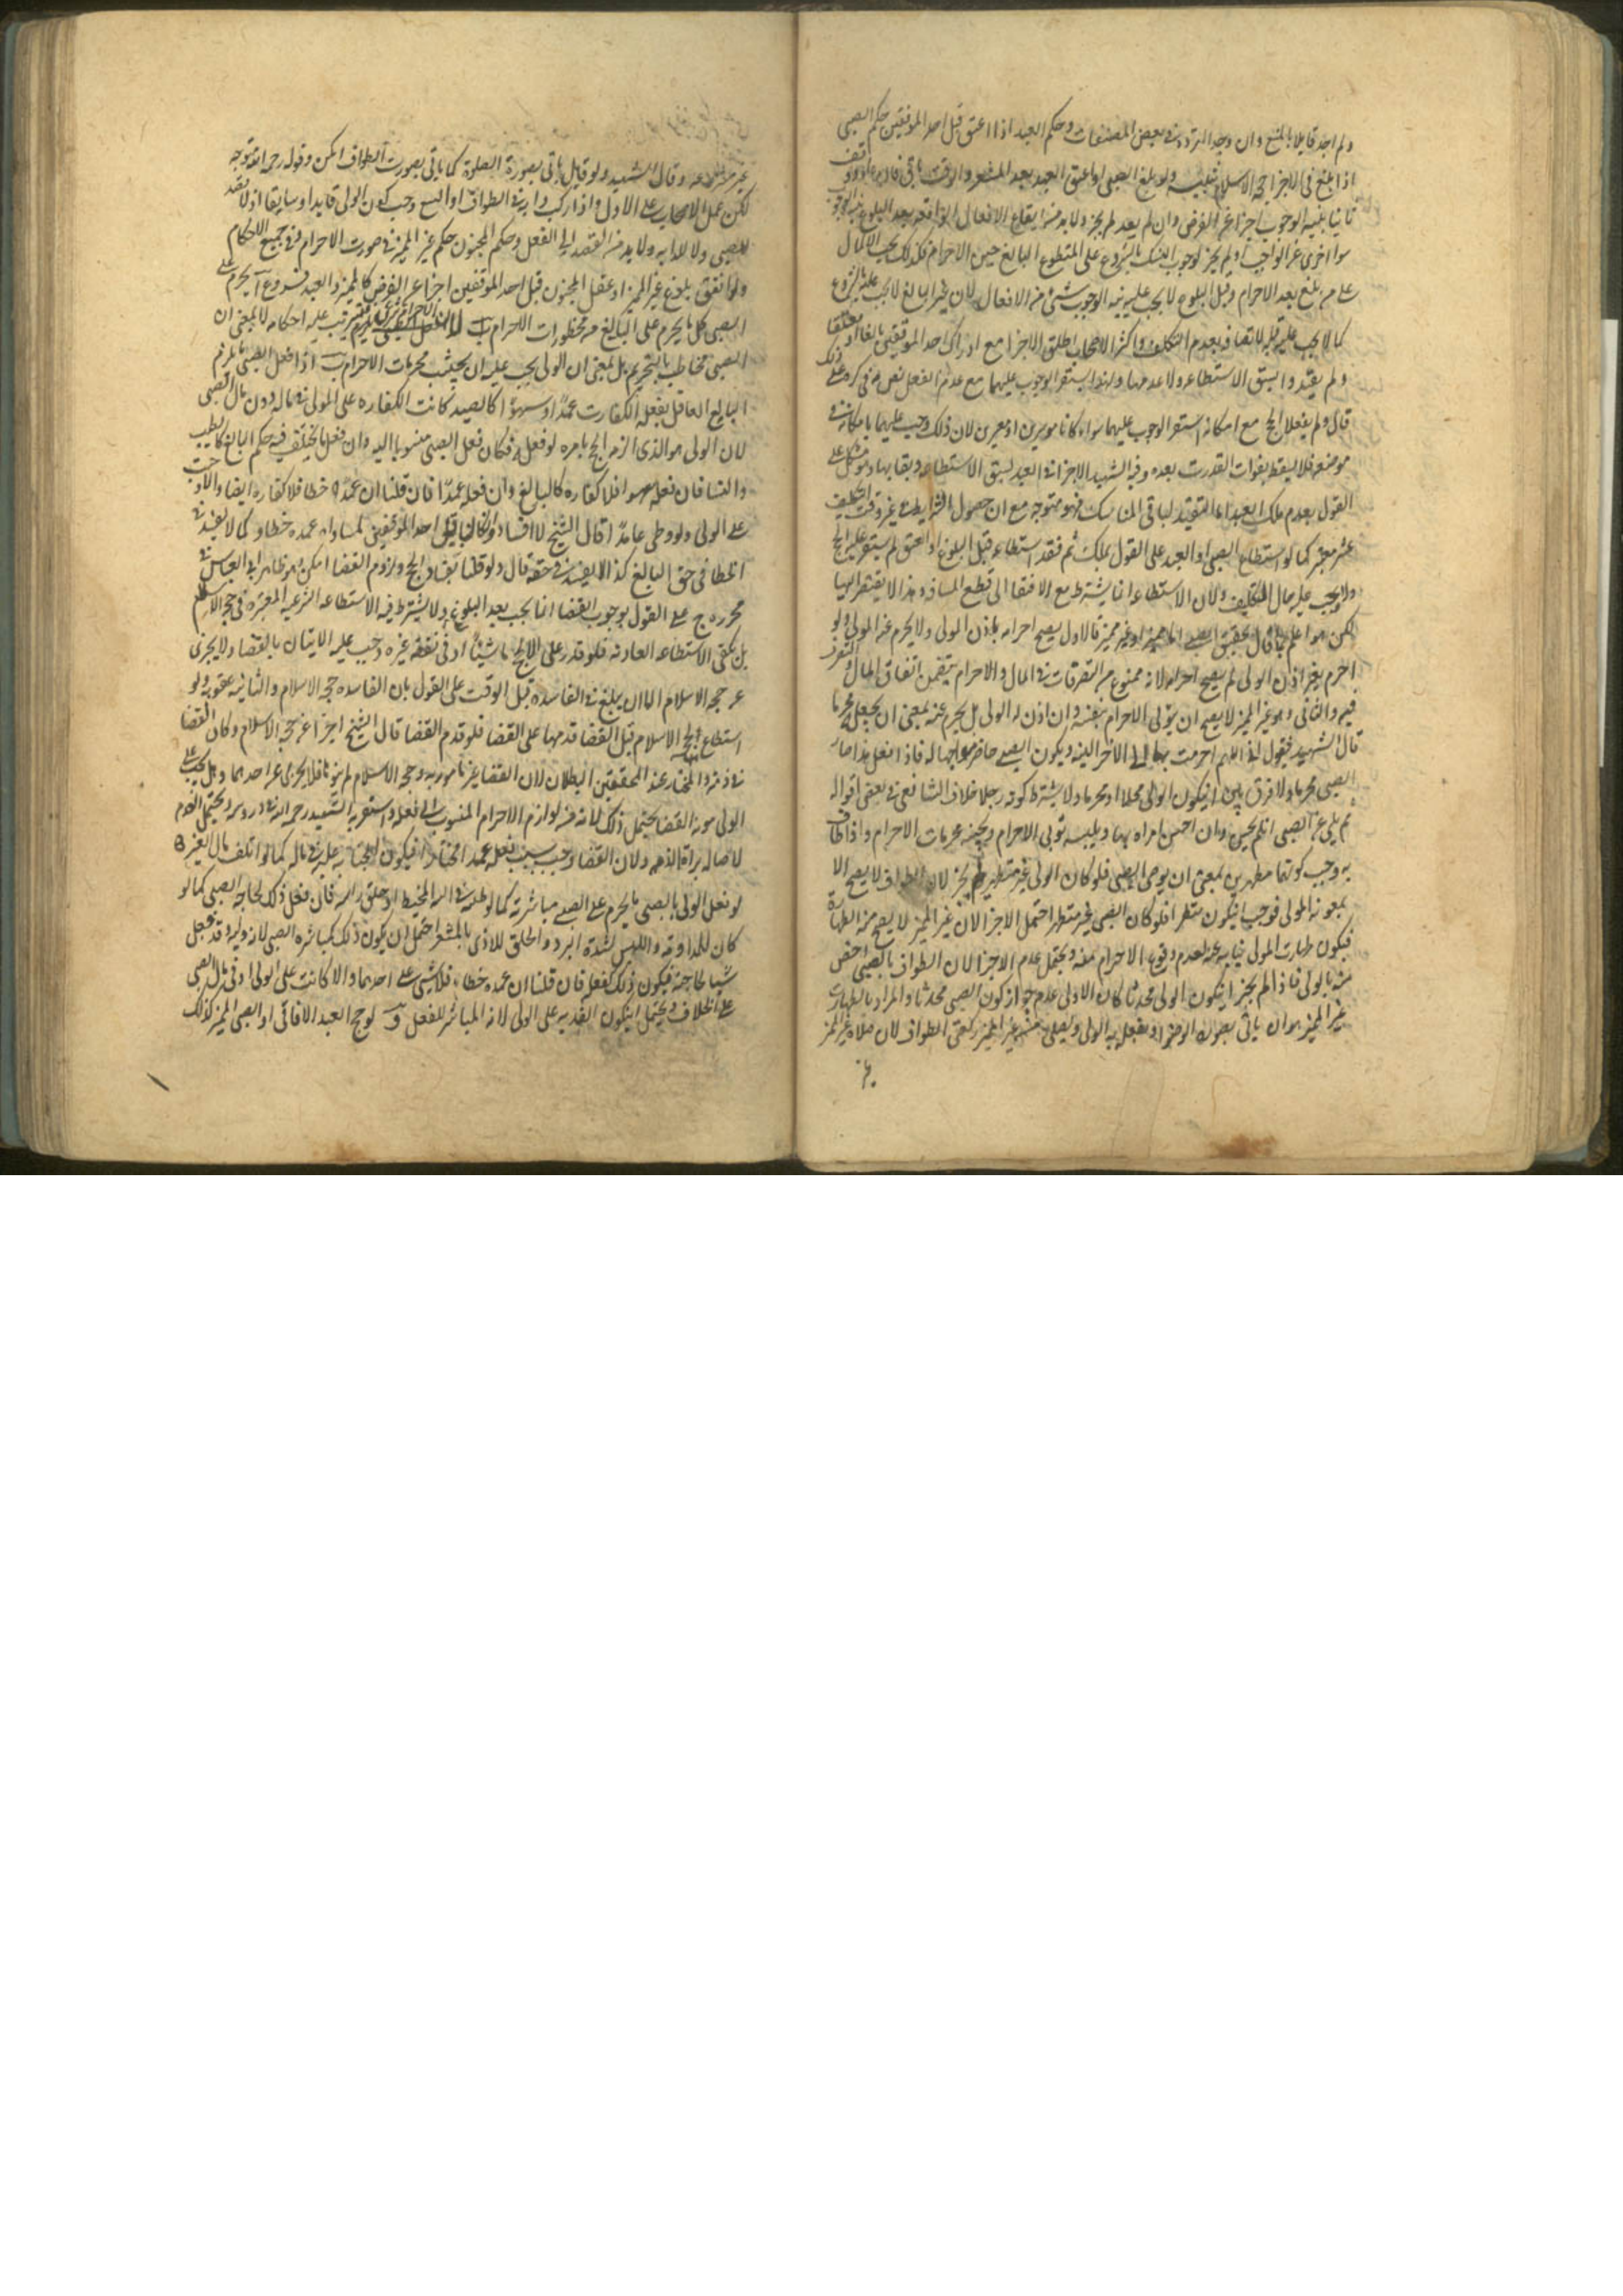 ولم اجد قايلا بالمنع وان وجد التردد في بعض المصنفات وحكم العبد اذا اعتق قبل احد الموقفين حكم الصبي
اذا بلغ في الاجزا حجة الاسلام ولو بلغ الصبي او اعتق العبد بعد المشعر والوقت باقي فان
ثانيا بنية الوجوب اجزا عن الفرض وان لم يعد لم يجز ولا بد من ايقاع الافعال الواقعه بعد البلوغ
سوا اخرى عن الواجب او لم يجز لوجوب النسك بالشروع على المتطوع البالغ حين الاحرام فكذلك يجب الاكمال
على من بلغ بعد الاحرام وقبل البلوغ لا يجب عليه نية الوجوب بشئ من الافعال لان غير البالغ لا يجب عليه بالشروع
كما لا يجب عليه قبله لاتصافه بعدم التكليف واكثر الاصحاب اطلق الاجزا مع ادراك احد الموقفين بالغا او معتقا
ولم يقيد وا بسبق الاستطاعه ولا عدمها ولهذا استقر الوجوب عليهما مع عدم الفعل نص
قال ولم يفعلا الحج مع امكانه استقر الوجوب عليهما سواء كانا موسرين او معسرين لان ذلك وجب عليهما بامكانه في
موضعه فلا يسقط بفوات القدرت بعده وفيه الشهيد الاجزا في العبد بسبق الاستطاعه وبقايها وهو مشكل على
القول بعدم ملك العبد اما التقييد لباقي المناسك فهو متوجه مع ان حصول الشرايط في غير وقت التكليف
غير معتبر كما لو استطاع الصبي او العبد على القول بملكه ثم فقد استطاعه قبل البلوغ او العتق لم يستقر عليه الحج
ولا يجب عليه حال التكليف ولان الاستطاعه انما يشترط مع الافتقار الى قطع المسافه وهذا لا يفتقر اليها
لكن هو اعلم بما قال تحقيق الصبي اما مميز او غير مميز فالاول يصح احرامه باذن المولى ولا يحرم عنه المولى ولو
احرم بغير اذن الولي لم يصح احرامه لانه ممنوع من التصرفات في المال والاحرام يتضمن انفاق المال والتصرف
فيه والثاني وهو غير المميز لا يصح ان يتولى الاحرام بنفسه وان اذن له الولي بل يحرم عنه بمعنى ان يجعله محرما
قال الشهيد فيقول اللهم احرمت بهذا الى الاخر النية ويكون الصبي حاضر مواجها له فاذا فعل هذا صار
الصبي محرما ولا فرق بين ان يكون الولي محلا او محرما ولا يشترط كونه رجلا خلاف الشافعي في بعض اقواله
ثم يلبي عن الصبي ان لم يحسن وان احسن امراه بها ويلبسه ثوبي الاحرام ويجنبه محرمات الاحرام واذا طاف
به وجب كونهما مطهرين بمعنى ان يوضي الصبي فلو كان الولي غير متطهر لم يجز لان الطواف لا يصح الا
بمعونة المولى فوجب ان يكون متطهرا فلو كان الصبي غير متطهر احتمل الاجزا لان غير المميز لا يصح منه الطهارة
فيكون طهارت المولى نيابه عنه لعدم وقوع الاحرام منه ويحتمل عدم الاجزا لان الطواف بالصبي اخص
منه بالولي فاذا لم يجز ان يكون الولي محدثا كان الاولى عدم جواز كون الصبي محدثا والمراد بالطهارت
غير المميز هو ان ياتي بصورة الوضوء او يفعله به الولي ويصلي عنه غير المميز ركعتي الطواف لان صلاة غير المميز
غير
غير مشروعه وقال الشهيد ولو قيل ياتي بصورة الصلوة كما ياتي بصورت الطواف امكن وقوله رحمه الله متوجه
لكن عمل الاصحاب على الاول واذا ركب دابه في الطواف او السعي وجب كون الولي قايدا او سايقا اذ لا قصد
للصبي ولا للدابه ولا بد من القصد الى الفعل وحكم المجنون حكم غير المميز في صورت الاحرام في جميع الاحكام
ولو اتفق بلوغ غير المميز او عقل المجنون قبل احد الموقفين اجزا عن الفرض كالمميز والعبد فروع آ يحرم على
الصبي كل ما يحرم على البالغ من محظورات الاحرام يترتب عليه احكامه لا بمعنى ان
الصبي مخاطب بالتحريم بل بمعنى ان الولي يجب عليه ان يجنبه محرمات الاحرام ب اذا فعل الصبي ما يلزم
البالغ العاقل بفعله الكفارت عمدا او سهوا كالصيد كانت الكفاره على المولى في ماله دون مال الصبي
لان الولي هو الذي الزمه الحج بامره لو فعله فكان فعل الصبي منسوبا اليه وان فعل ما يختلف فيه حكم البالغ كالطيب
والنسا فان فعله سهوا فلا كفاره كالبالغ وان فعله عمدا فان قلنا ان عمده خطا فلا كفاره ايضا والا وجبت
على الولي ولو وطى عامدا قال الشيخ لا افساد قبل احد الموقفين لمساواه عمده خطاو كما لا يفسد في
الخطا في حق البالغ كذا لا يفسد في حقه قال ولو قلنا بفساد الحج ولزوم القضا امكن وهو ظاهر ابي العباس في
محرره ج على القول بوجوب القضا انما يجب بعد البلوغ ولا يشترط فيه الاستطاعه الشرعيه المعتبره في حج الاسلام
بل تكفي الاستطاعه العاديه فلو قدر على الحج ماشيا او في نفقة غيره وجب عليه الاتيان بالقضا ولا يجزى
عن حجة الاسلام الا ان يبلغ في الفاسده قبل الوقت على القول بان الفاسده حجة الاسلام والثانيه عقوبه ولو
استطاع لحج الاسلام قبل القضا قدمها على القضا فلو قدم القضا قال الشيخ اجزا عن حجة الاسلام وكان القضا
في ذمته والمختار عند المحققين البطلان لان القضا غير مامور به وحجة الاسلام لم ينوها فلا يجزى عن احدهما وهل يجب على
الولي مونة القضا يحتمل ذلك لانه من لوازم الاحرام المنسوب الى فعله واستقربه الشهيد رحمه الله في دروسه ويحتمل العدم
لاصالة براة الذمه ولان القضا وجب بسبب فعله عمدا مختارا فيكون الجناية عليه في ماله كما لو اتلف مال الغير
لو فعل الولي بالصبي ما يحرم على الصبي مباشرته كما لو البسه المخيط او حلق راسه فان فعل ذلك لحاجة الصبي كما لو
كان للمداوته واللبس لشدة البرد والحلق للاذى احتمل ان يكون ذلك كمباشره الصبي لانه وليه وقد فعل
شيا لحاجته فيكون ذلك كفعله فان قلنا ان عمده خطا فلا شئ على احدهما والا كانت على الولي او في مال الصبي
على الخلاف ويحتمل ان يكون الفديه على الولي لانه المباشر للفعل و لو حج العبد الافاقي او الصبي المميز كذلك